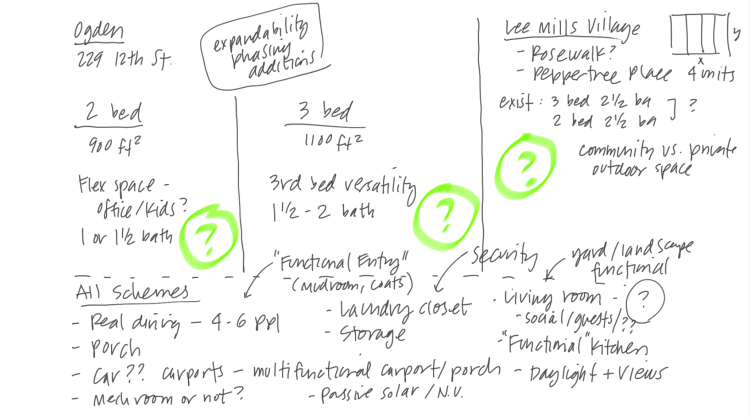 Ogden
229 12th St.
expandability
phasing
additions
2 bed
900 ft²
Flex space -
office/kids?
1 or 1½ bath
?
3 bed
1100 ft²
3rd bed versatility
1½ - 2 bath
?
Lee Mills Village
- Rosewalk?
- Peppertree Place 4 units
x
y
exist: 3 bed 2½ ba
2 bed 2½ ba
?
community vs. private
outdoor space
?
All Schemes
- Real dining - 4-6 ppl
- porch
- car?? carports - multifunctional carport/porch
- Mech room or not?
"Functional Entry"
(mudroom, coats)
- Laundry closet
- Storage
- Passive solar / N.V.
Security
yard/landscape
functional
· Living room - ?
- social/guests/??
- "Functional" Kitchen
- Daylight + Views